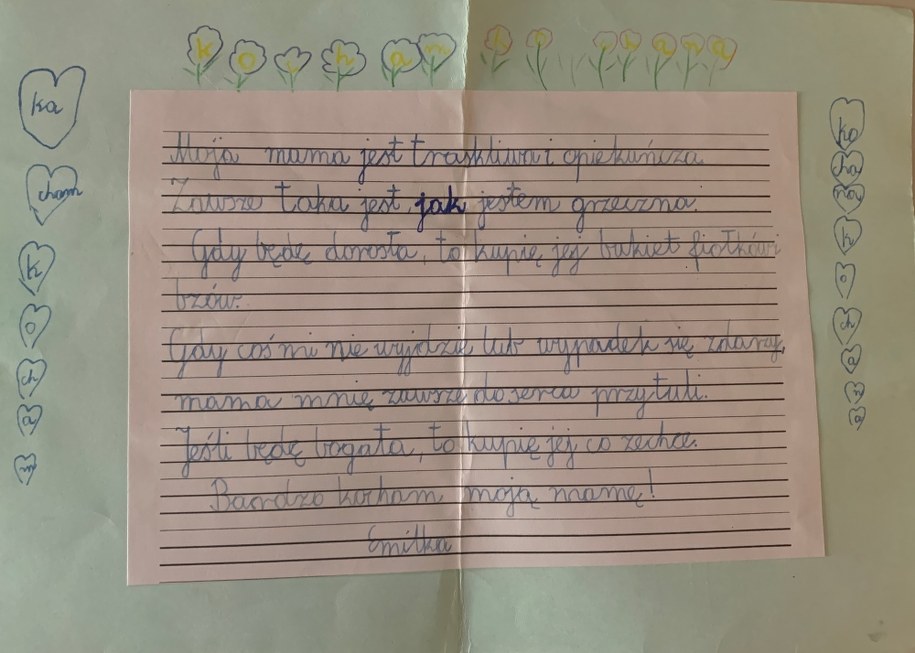 kocham kochana
Moja mama jest troskliwa i opiekuńcza.
Zawsze taka jest, jak jestem grzeczna.
Gdy będę dorosła, to kupię jej bukiet fiołków i
bzów.
Gdy coś mi nie wyjdzie lub wypadek się zdarzy,
mama mnie zawsze do serca przytuli.
Jeśli będę bogata, to kupię jej co zechce.
Bardzo kocham moją mamę!
Emilka
ko
cham
k
o
ch
a
m
ko
cha
na
k
o
ch
a
n
a